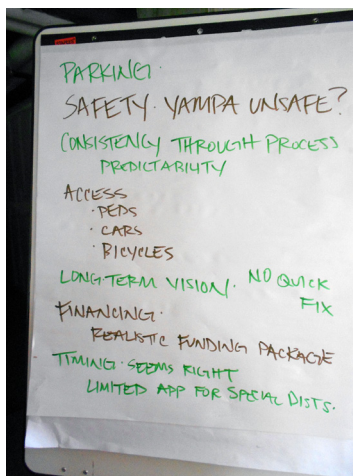 PARKING.
SAFETY. YAMPA UNSAFE?
CONSISTENCY THROUGH PROCESS
PREDICTABILITY
ACCESS
· PEDS
· CARS
· BICYCLES
LONG-TERM VISION. NO QUICK
FIX
FINANCING.
REALISTIC FUNDING PACKAGE
TIMING. SEEMS RIGHT
LIMITED APP FOR SPECIAL DISTS.